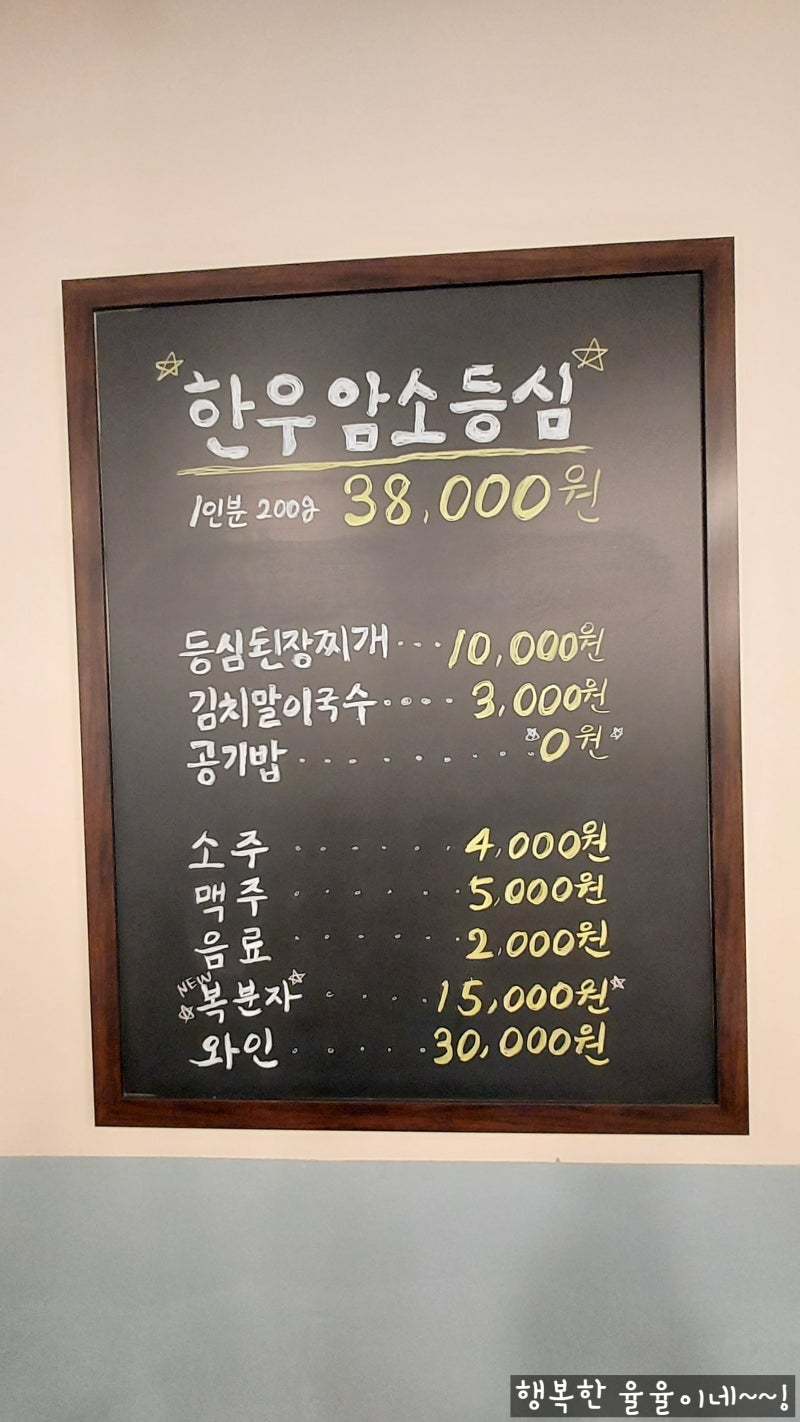 한우 암소등심
1인분 200g 38,000원
등심된장찌개···10,000원
김치말이국수····3,000원
공기밥·········0원
소주······4,000원
맥주······5,000원
음료······2,000원
NEW
복분자·····15,000원
와인·····30,000원
행복한 율율이네~~!